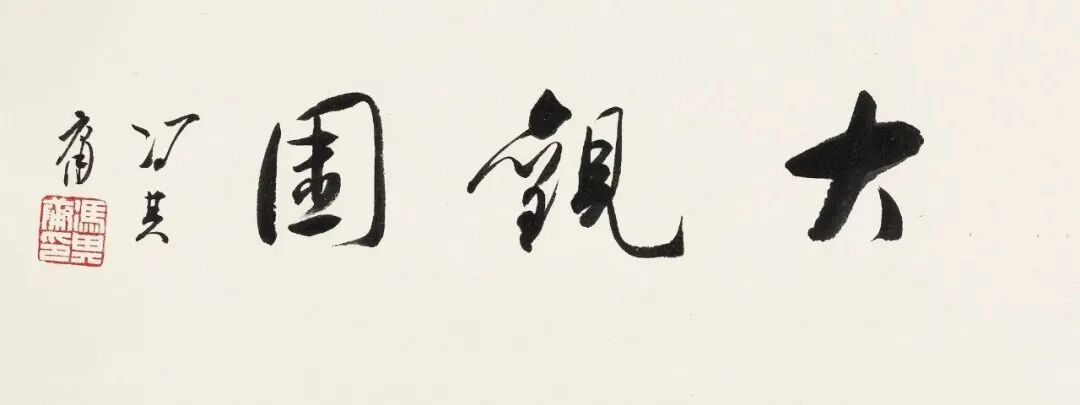 大觀園
冯其
庸
馮其庸印